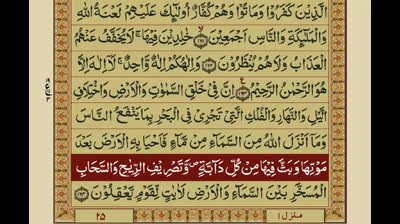 الَّذِيْنَ كَفَرُوْا وَمَاتُوْا وَهُمْ كُفَّارٌ اُولٰٓئِكَ عَلَيْهِمْ لَعْنَةُ اللّٰهِ
وَالْمَلٰٓئِكَةِ وَالنَّاسِ اَجْمَعِيْنَ ۙ﴿۱۶۱﴾ خٰلِدِيْنَ فِيْهَا ۚ لَا يُخَفَّفُ عَنْهُمُ
الْعَذَابُ وَلَا هُمْ يُنْظَرُوْنَ ﴿۱۶۲﴾ وَاِلٰهُكُمْ اِلٰهٌ وَّاحِدٌ ۚ لَآ اِلٰهَ اِلَّا
هُوَ الرَّحْمٰنُ الرَّحِيْمُ ﴿۱۶۳﴾ اِنَّ فِيْ خَلْقِ السَّمٰوٰتِ وَالْاَرْضِ وَاخْتِلَافِ
الَّيْلِ وَالنَّهَارِ وَالْفُلْكِ الَّتِيْ تَجْرِيْ فِي الْبَحْرِ بِمَا يَنْفَعُ النَّاسَ
وَمَآ اَنْزَلَ اللّٰهُ مِنَ السَّمَآءِ مِنْ مَّآءٍ فَاَحْيَا بِهِ الْاَرْضَ بَعْدَ
مَوْتِهَا وَبَثَّ فِيْهَا مِنْ كُلِّ دَآبَّةٍ ۪ وَّتَصْرِيْفِ الرِّيٰحِ وَالسَّحَابِ
الْمُسَخَّرِ بَيْنَ السَّمَآءِ وَالْاَرْضِ لَاٰيٰتٍ لِّقَوْمٍ يَّعْقِلُوْنَ ﴿۱۶۴﴾
منزل ۱
۲۵